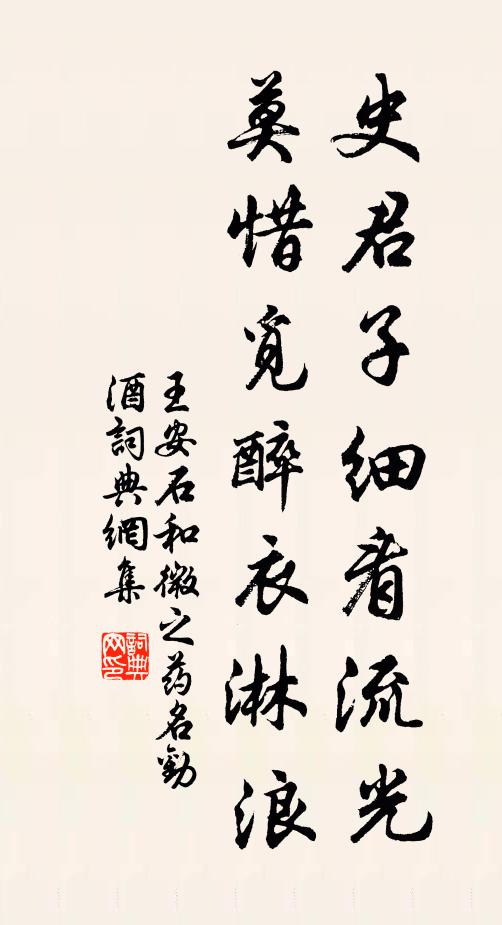 史君子细看流光
莫惜覓醉衣淋浪
王安石和微之药名勸
酒詞典網集
詞典網印